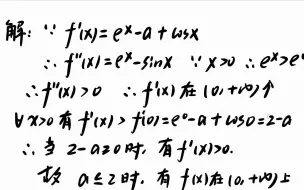 解：∵ f'(x)=eˣ-a+cosx
∴ f''(x)=eˣ-sinx ∵ x>0 ∴ eˣ>e⁰
∴ f''(x)>0 ∴ f'(x) 在 (0,+∞)↑
∀x>0 有 f'(x)>f'(0)=e⁰-a+cos0=2-a
∴ 当 2-a≥0时, 有 f'(x)>0.
故 a≤2时, 有 f(x)在(0,+∞)上